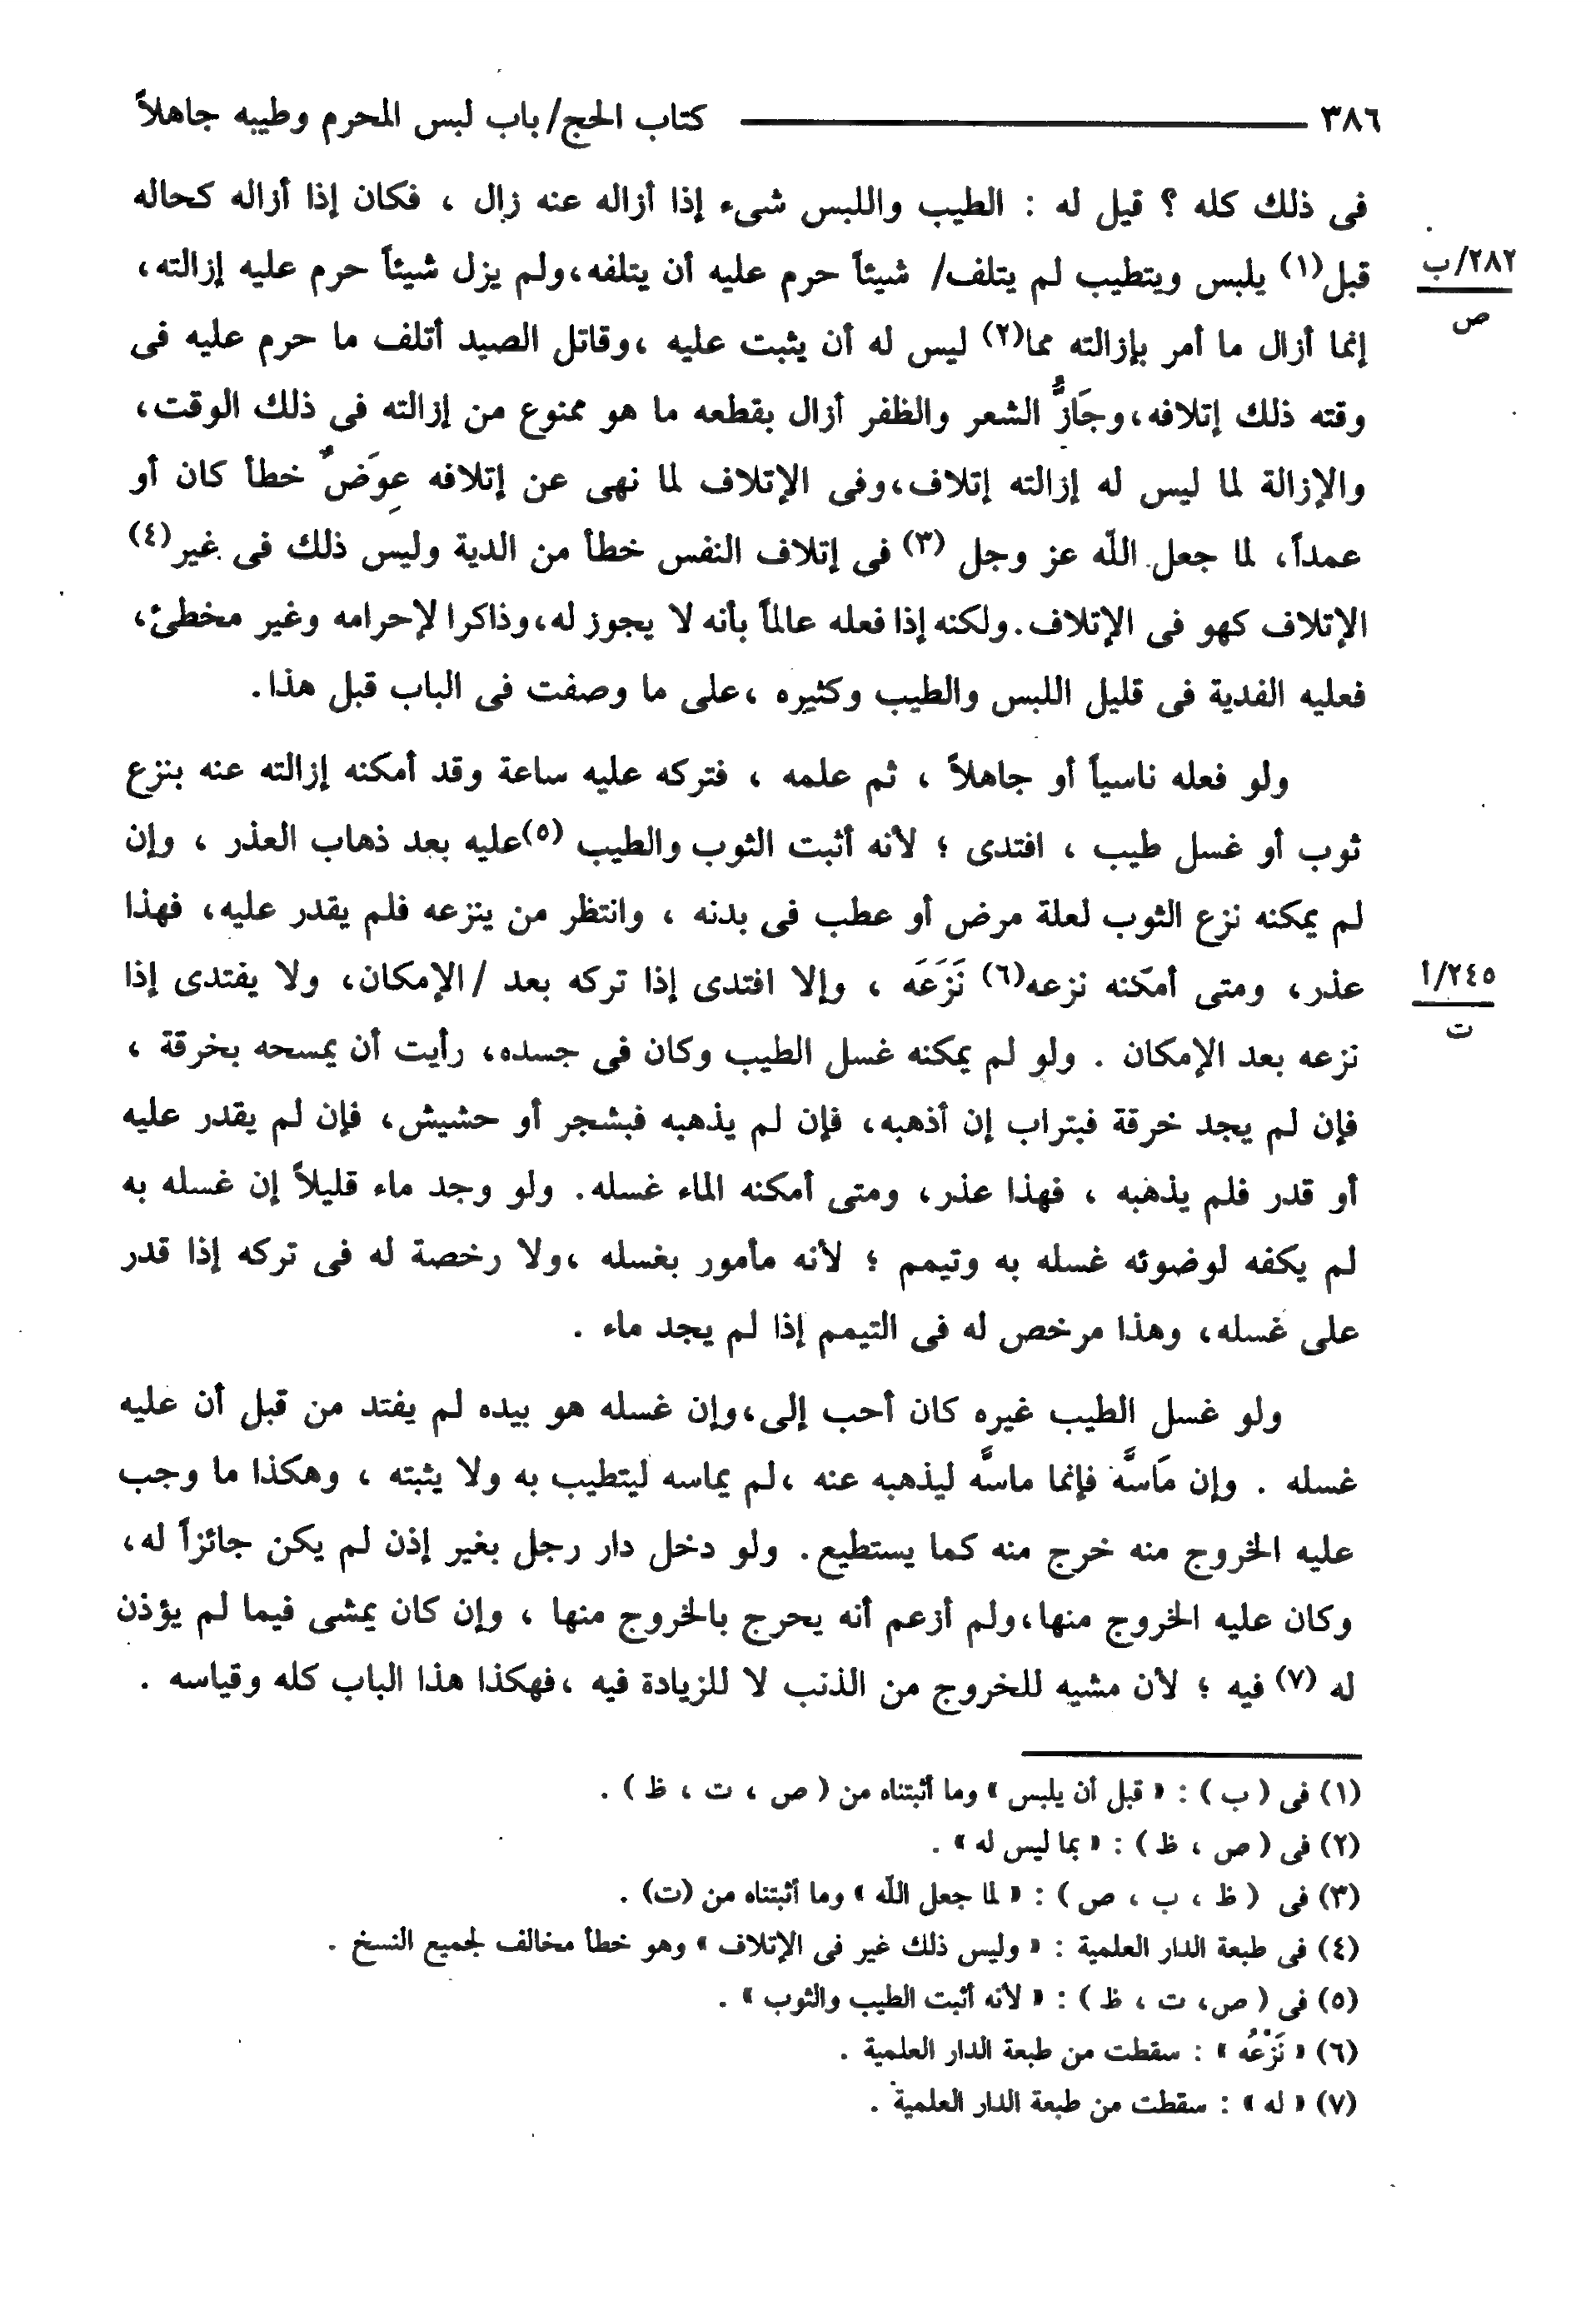 ٣٨٦ كتاب الحج/ باب لبس المحرم وطيبه جاهلاً
فى ذلك كله ؟ قيل له : الطيب واللبس شىء إذا أزاله عنه زال ، فكان إذا أزاله كحاله
قبل(١) يلبس ويتطيب لم يتلف/ شيئاً حرم عليه أن يتلفه،ولم يزل شيئاً حرم عليه إزالته،
٢٨٢/ب
ص
إنما أزال ما أمر بإزالته مما(٢) ليس له أن يثبت عليه ،وقاتل الصيد أتلف ما حرم عليه فى
وقته ذلك إتلافه،وجَازُّ الشعر والظفر أزال بقطعه ما هو ممنوع من إزالته فى ذلك الوقت،
والإزالة لما ليس له إزالته إتلاف،وفى الإتلاف لما نهى عن إتلافه عِوَضٌ خطأ كان أو
عمداً، لما جعل اللّه عز وجل (٣) فى إتلاف النفس خطأ من الدية وليس ذلك فى غير(٤)
الإتلاف كهو فى الإتلاف.ولكنه إذا فعله عالماً بأنه لا يجوز له،وذاكرا لإحرامه وغير مخطئ،
فعليه الفدية فى قليل اللبس والطيب وكثيره ،على ما وصفت فى الباب قبل هذا.
ولو فعله ناسياً أو جاهلاً ، ثم علمه ، فتركه عليه ساعة وقد أمكنه إزالته عنه بنزع
ثوب أو غسل طيب ، افتدى ؛ لأنه أثبت الثوب والطيب (٥)عليه بعد ذهاب العذر ، وإن
لم يمكنه نزع الثوب لعلة مرض أو عطب فى بدنه ، وانتظر من ينزعه فلم يقدر عليه، فهذا
عذر، ومتى أمكنه نزعه(٦) نَزَعَه ، وإلا افتدى إذا تركه بعد /الإمكان، ولا يفتدى إذا
٢٤٥/أ
ت
نزعه بعد الإمكان . ولو لم يمكنه غسل الطيب وكان فى جسده، رأيت أن يمسحه بخرقة ،
فإن لم يجد خرقة فبتراب إن أذهبه، فإن لم يذهبه فبشجر أو حشيش، فإن لم يقدر عليه
أو قدر فلم يذهبه ، فهذا عذر، ومتى أمكنه الماء غسله. ولو وجد ماء قليلاً إن غسله به
لم يكفه لوضوئه غسله به وتيمم ؛ لأنه مأمور بغسله ،ولا رخصة له فى تركه إذا قدر
على غسله، وهذا مرخص له فى التيمم إذا لم يجد ماء .
ولو غسل الطيب غيره كان أحب إلى،وإن غسله هو بيده لم يفتد من قبل أن عليه
غسله . وإن مَاسَّه فإنما ماسَّه ليذهبه عنه ،لم يماسه ليتطيب به ولا يثبته ، وهكذا ما وجب
عليه الخروج منه خرج منه كما يستطيع. ولو دخل دار رجل بغير إذن لم يكن جائزاً له،
وكان عليه الخروج منها،ولم أزعم أنه يحرج بالخروج منها ، وإن كان يمشى فيما لم يؤذن
له (٧) فيه ؛ لأن مشيه للخروج من الذنب لا للزيادة فيه ،فهكذا هذا الباب كله وقياسه .
(١) فى ( ب ) : « قبل أن يلبس » وما أثبتناه من ( ص ، ت ، ظ ) .
(٢) فى ( ص ، ظ ) : « بما ليس له » .
(٣) فى ( ظ ، ب ، ص ) : « لما جعل اللّه » وما أثبتناه من (ت) .
(٤) فى طبعة الدار العلمية : « وليس ذلك غير فى الإتلاف » وهو خطأ مخالف لجميع النسخ .
(٥) فى ( ص، ت ، ظ ) : « لأنه أثبت الطيب والثوب » .
(٦) « نَزْعُه » : سقطت من طبعة الدار العلمية .
(٧) « له » : سقطت من طبعة الدار العلمية .